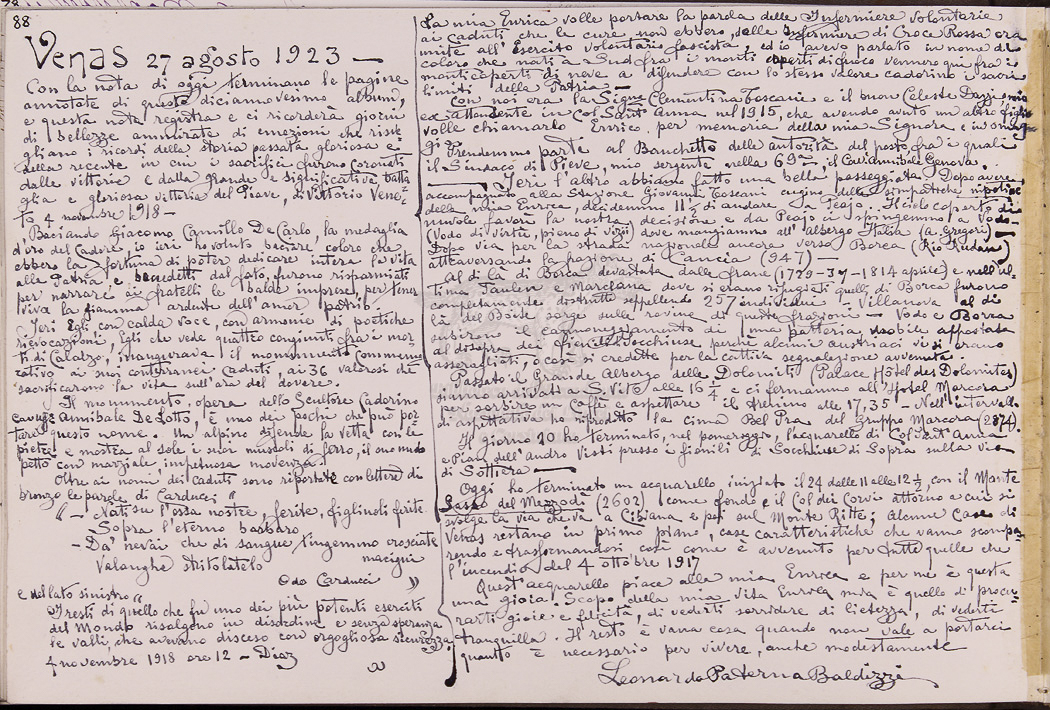 88
Venas 27 agosto 1923 —
Con la nota di oggi terminano le pagine
annotate di questo diciannovesimo album,
e questa nota registra e ci ricorderà giorni
di bellezze ammirate di emozioni che risve
gliano i ricordi della storia passata gloriosa e
della recente in cui i sacrifici furono coronati
dalle vittorie e dalla grande e significativa batta
glia e gloriosa vittoria del Piave, di Vittorio Vene-
to 4 novembre 1918 —
Baciando Giacomo Camillo De Carlo, la medaglia
d'oro del Cadore, io ieri ho voluto baciare coloro che
ebbero la fortuna di poter dedicare intera la vita
alla Patria e benedetti dal fato, furono risparmiati
per narrare ai fratelli le balde imprese, per tener
viva la fiamma ardente dell'amor patrio.
Ieri Egli con calda voce, con armonie di poetiche
rievocazioni, Egli che vede quattro congiunti fra i mor
ti di Calalzo, inaugurava il monumento commemo
rativo ai suoi conterranei caduti, ai 36 valorosi che
sacrificarono la vita sull'ara del dovere.
Il monumento, opera dello Scultore Cadorino
Cav Uff Annibale De Lotto, è uno dei pochi che può por
tare questo nome. Un'alpino difende la vetta con le
pietre e mostra al sole i suoi muscoli di ferro, il suo nudo
petto con marziale, impetuosa movenza.
Oltre ai nomi dei caduti sono riportate con lettere di
bronzo le parole di Carducci "
" — Nati su l'ossa nostre, ferite, figliuoli ferite
Sopra l'eterno barbaro
— Da' nevai che di sangue tingemmo crosciate
macigni
Valanghe stritolatelo
Odo Carducci "
e del lato sinistro "
I resti di quello che fu uno dei più potenti eserciti
del Mondo risalgono in disordine e senza speranza
le valli, che avevano disceso con orgogliosa sicurezza.
4 novembre 1918 ore 12 — Diaz
La mia Enrica volle portare la parola delle Infermiere volontarie
ai caduti che le cure non ebbero, delle Infermiere di Croce Rossa ora
unite all'Esercito volontario fascista, ed io avevo parlato in nome di
coloro che nati a Sud fra i monti coperti di fuoco vennero qui fra i
monti coperti di neve a difendere con lo stesso valore cadorino i sacri
limiti della Patria.
Con noi era la Signa Clementina Toscani e il buon Celeste Dazzi, mio
ex attendente in Col Sant'Anna nel 1915, che avendo avuto un altro figlio
volle chiamarlo Enrico, per memoria della mia Signora e in omag
gio.
Prendemmo parte al Banchetto delle autorità del posto fra i quali
il Sindaco di Pieve, mio sergente nella 69ma il Cav Annibale Genova.
— Ieri l'altro abbiamo fatto una bella passeggiata. Dopo avere
accompagnato alla Stazione Giovanni Toscani cugino delle simpatiche nipotine
della mia Enrica, decidemmo 11½ di andare a Peajo. Il cielo coperto di
nuvole favorì la nostra decisione e da Peajo ci spingemmo a Vodo
(Vodo di virtù, pieno di vizii) dove mangiammo all'albergo Italia (a. Gregori) —
Dopo via per la strada nazionale ancora verso Borca (Rio Rudan)
attraversando la frazione di Cancia (947) —
Al di là di Borca devastata dalle frane (1779-37-1814 aprile) e nell'ul
tima Taulen e Marceana dove si erano rifugiati quelli di Borca furono
completamente distrutte seppellendo 257 individui — Villanova al di
là del Boite sorge sulla rovine di queste frazioni — Vodo e Borca
subirono il cannoneggiamento di una batteria, mobile appostata
al di sopra dei fienili di Socchiuse perchè alcuni austriaci vi si erano
asseragliati, o così si credette per la cattiva segnalazione avvenuta.
Passato il Grande Albergo delle Dolomiti (Palace Hôtel des Dolomites)
siamo arrivati a S. Vito alle 16¼ e ci fermammo all'Hotel Marcora
per sorbire un caffè e aspettare il trenino alle 17,35 — Nell'intervallo
di aspettativa ho riprodotto la cima Bel Pra del Gruppo Marcora (2874).
Il giorno 20 ho terminato, nel pomeriggio, l'acquarello di Col Sant'Anna
e Pian dell'Andro visti presso i fienili di Socchiuse di Sopra sulla via
di Sottiera —
Oggi ho terminato un acquarello iniziato il 24 dalle 11 alle 12½, con il Monte
Sasso del Mezzodì (2602) come fondo e il Col dei Corvi attorno a cui si
svolge la via che va a Cibiana e poi sul Monte Ritte; Alcune Case di
Venas restano in primo piano, case caratteristiche che vanno scompa
rendo e trasformandosi così come è avvenuto per tutte quelle che
l'incendio del 4 ottobre 1917
Quest'acquarello piace alla mia Enrica e per me è questa
una gioia. Scopo della mia vita Enrica mia è quello di procu
rarti gioie e felicità, di vederti sorridere di lietezza, di vederti
tranquilla. Il resto è vana cosa quando non vale a portarci
quanto è necessario per vivere, anche modestamente
Leonardo Paterna Baldizzi